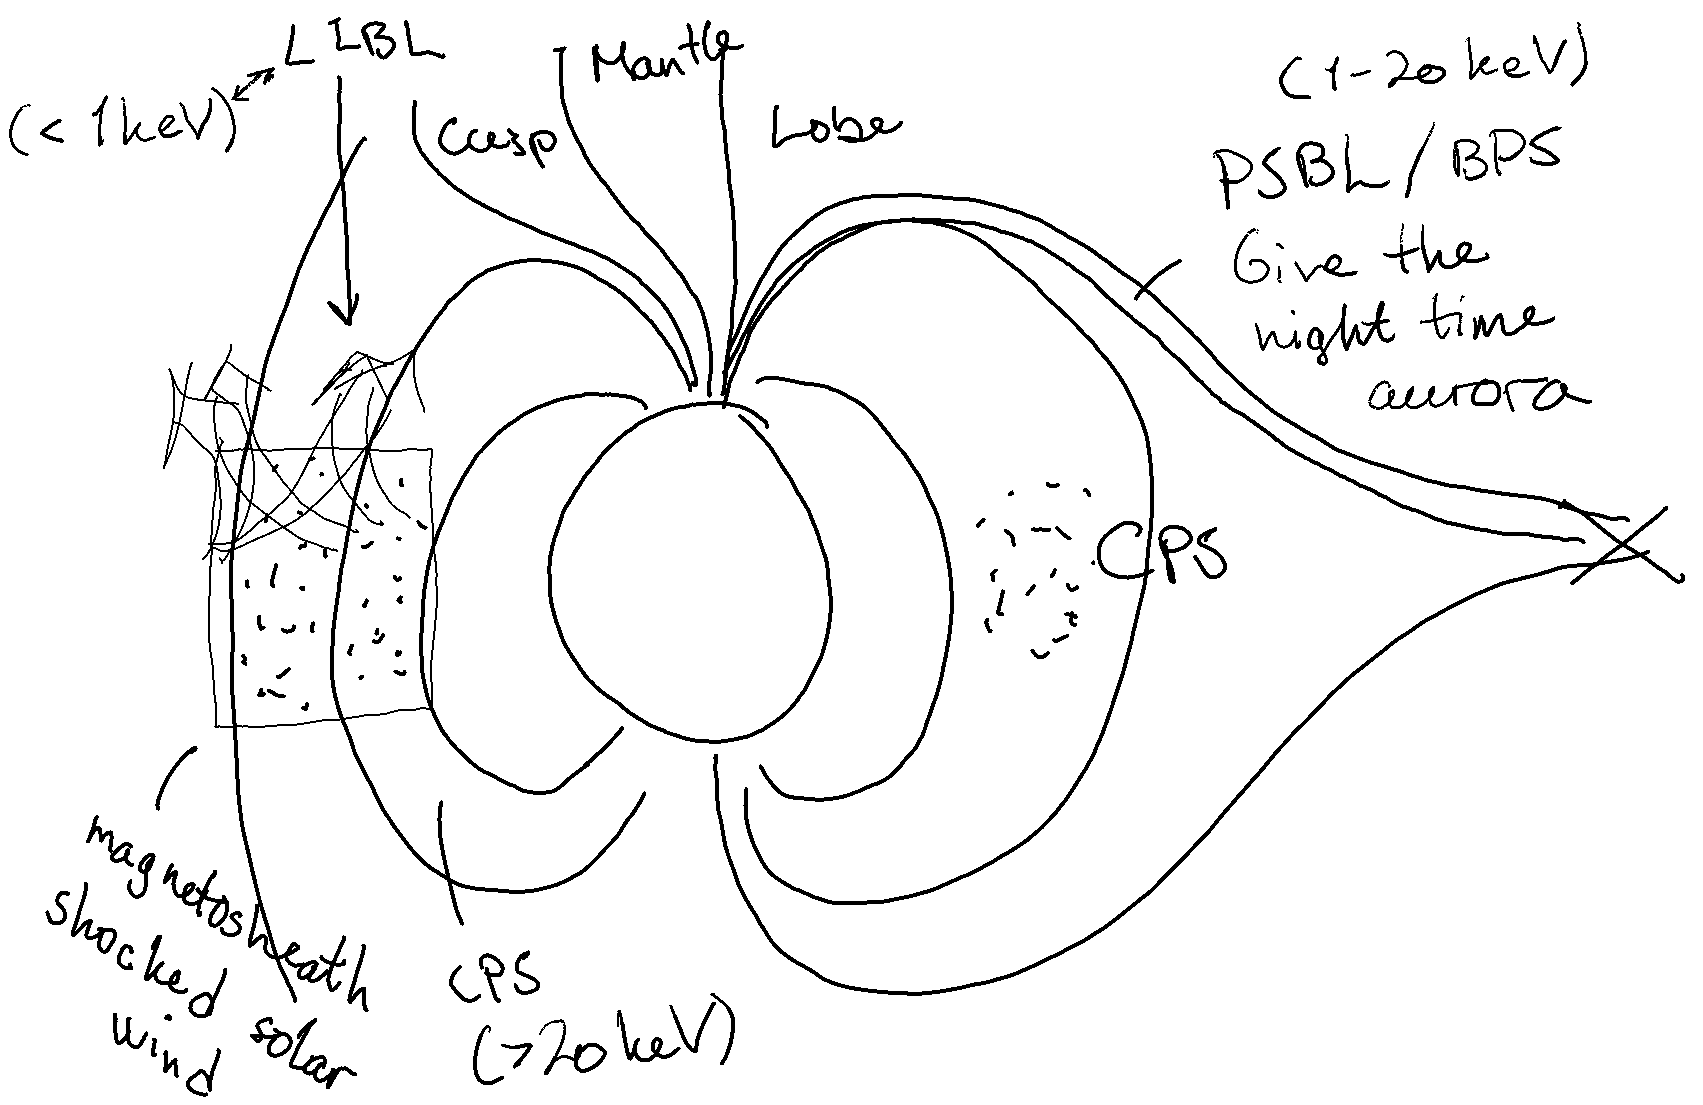 LLBL
(< 1keV)
Cusp
Mantle
Lobe
(1-20keV)
PSBL/BPS
Give the
night time
aurora
CPS
magnetosheath
shocked solar
wind
CPS
(>20keV)